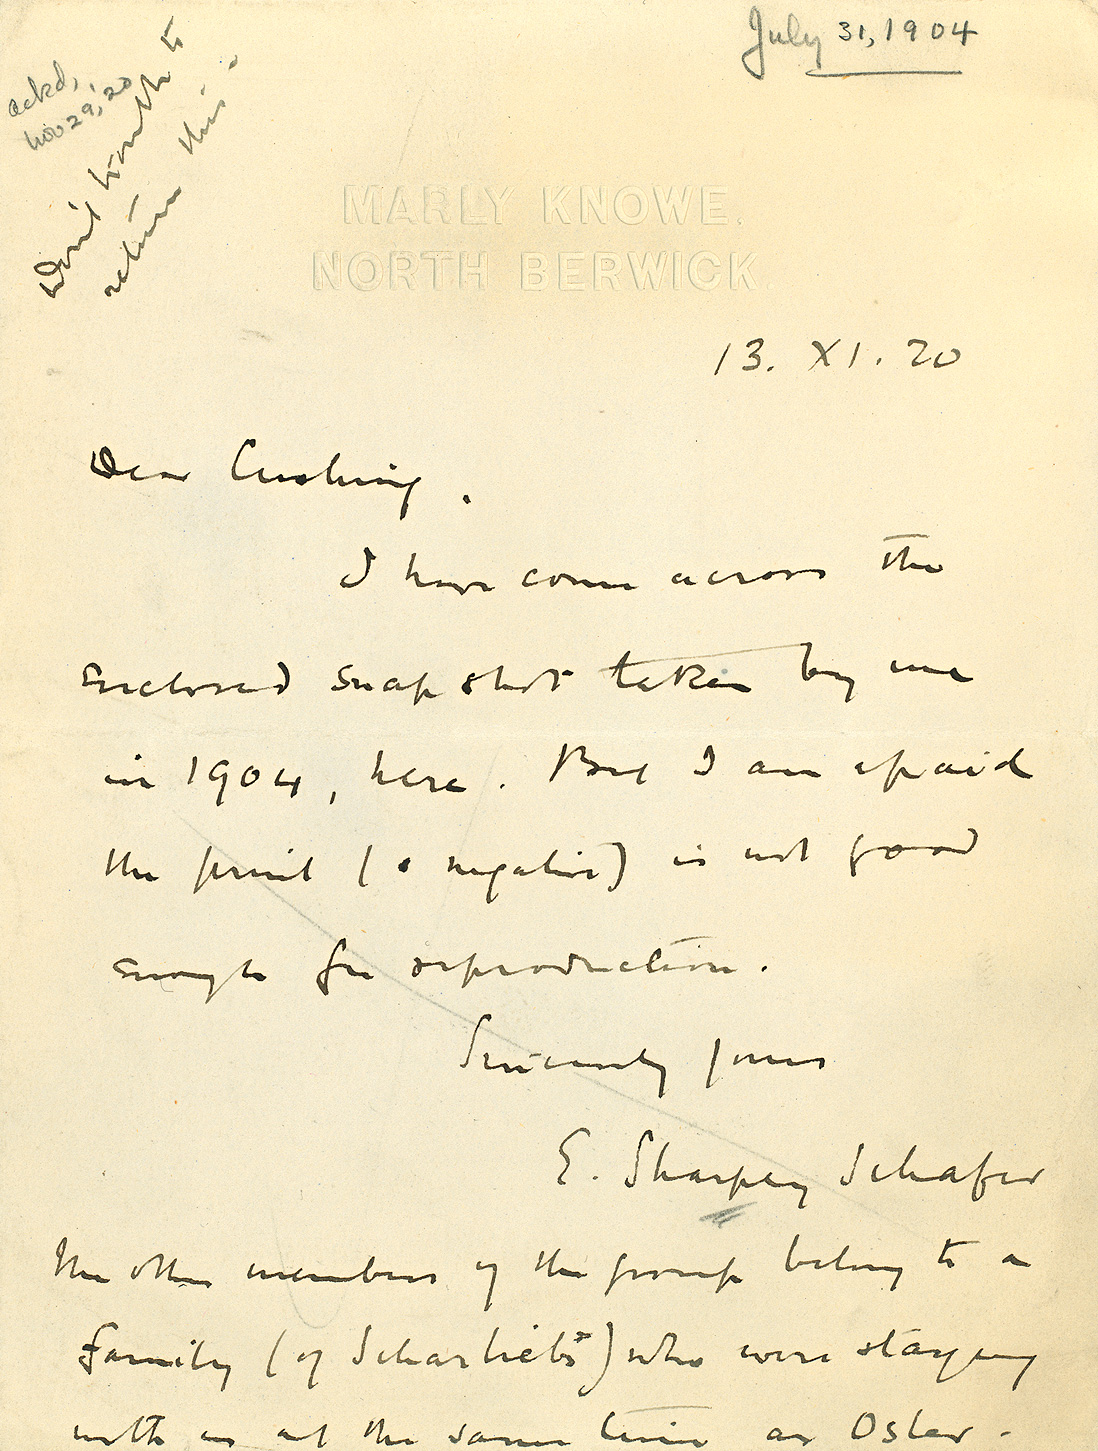 July 31, 1904
ackd,
Nov 29, '20
Don't trouble to
return this.
MARLY KNOWE.
NORTH BERWICK.
13. XI. 20
Dear Cushing,
I have come across the
enclosed snapshot taken by me
in 1904, here. But I am afraid
the print (& negative) is not good
enough for reproduction.
Sincerely yours
E. Sharpey Schafer
The other members of the group belong to a
family (of Scharliebs) who were staying
with us at the same time as Osler.